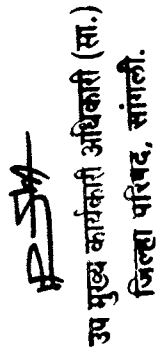 उप मुख्य कार्यकारी अधिकारी (सा.)
जिल्हा परिषद, सांगली.